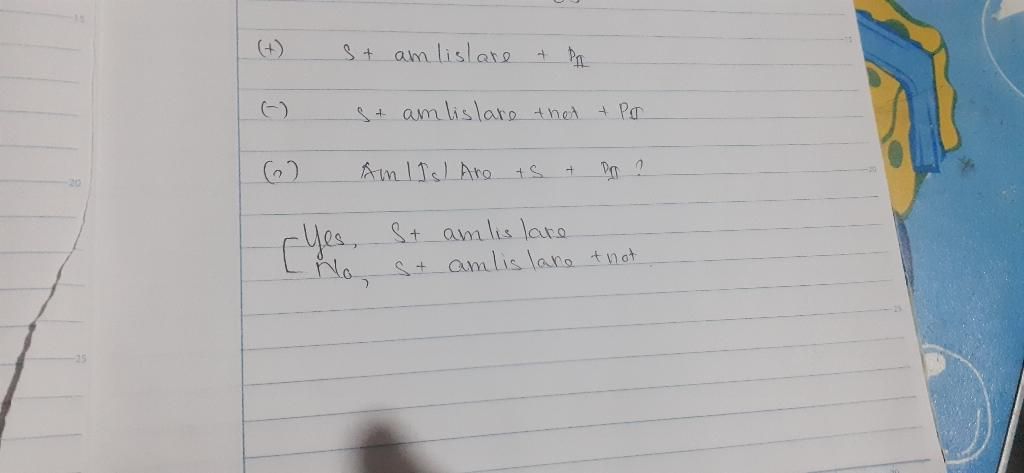 (+) S + am/is/are + PII
(-) S + am/is/are + not + PII
(?) Am/Is/Are + S + PII ?
Yes, S + am/is/are
No, S + am/is/are + not